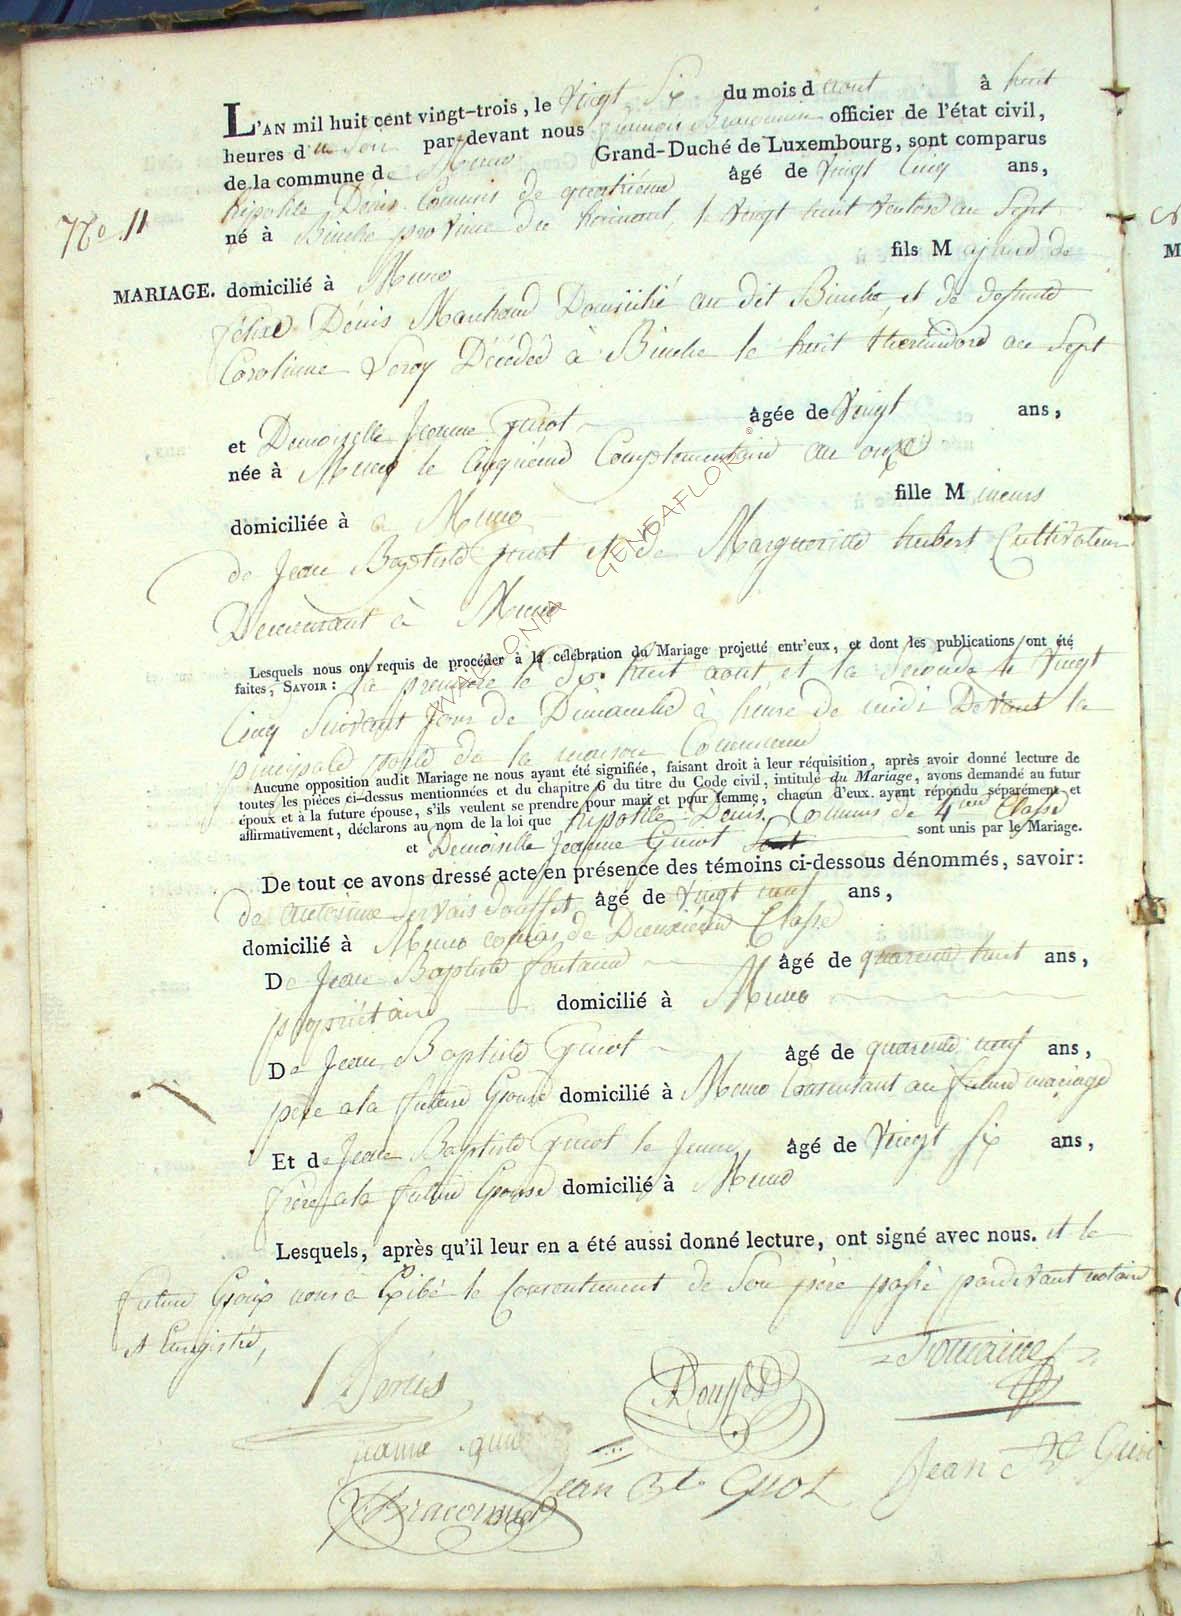 L'AN mil huit cent vingt-trois, le Vingt Six du mois d aout à huit
heures d u Soir par devant nous françois Braconnier officier de l'état civil,
de la commune de Muno Grand-Duché de Luxembourg, sont comparus
hipolite Denis Commis de quatriéme âgé de Vingt Cinq ans,
No. 11
né à Binche province du hainaut le Vingt huit Ventose an Sept
MARIAGE. domicilié à Muno fils M ajeur de
Denis Marchand Domicilié au dit Binche et de defunte
Caroline Leroy Décédée à Binche le huit thermidore an Sept
et Demoiselle Jeanne Guiot âgée de Vingt ans,
née à Muno le Cinquiéme Complementaire an onze
domiciliée à a Muno fille M ineure
de Jean Baptiste Guiot et de Margueritte hubert Cultivateur
Demeurant à Muno
Lesquels nous ont requis de procéder à la célébration du Mariage projetté entr'eux, et dont les publications ont été
faites, SAVOIR : la premiere le dix huit aout et la seconde le Vingt
Cinq Suivant jour de Dimanche à heure de midi Devant la
principale porte de la maison Commune
Aucune opposition audit Mariage ne nous ayant été signifiée, faisant droit à leur réquisition, après avoir donné lecture de
toutes les pièces ci-dessus mentionnées et du chapitre 6 du titre du Code civil, intitulé du Mariage, avons demandé au futur
époux et à la future épouse, s'ils veulent se prendre pour mari et pour femme, chacun d'eux ayant répondu séparément et
affirmativement, déclarons au nom de la loi que hipolite Denis Commis de 4eme Classe
et Demoiselle Jeanne Guiot sont unis par le Mariage.
De tout ce avons dressé acte en présence des témoins ci-dessous dénommés, savoir:
de antoine Servais Douffet âgé de Vingt neuf ans,
domicilié à Muno commis de Deuxiéme Classe
De Jean Baptiste fontaine âgé de quarente huit ans,
propriétaire domicilié à Muno
De Jean Baptiste Guiot âgé de quarente neuf ans,
père a la future Epouse domicilié à Muno Consentant au future mariage
Et de Jean Baptiste Guiot le Jeune âgé de Vingt Six ans,
frère a la future Epouse domicilié à Muno
Lesquels, après qu'il leur en a été aussi donné lecture, ont signé avec nous. et le
future Epoux nous a Exibé le Consentement de Son père passé pardevant notaire
et Enregistré,
Denis
Douffet
Jeanne guiot
Jean Bte Guiot
Jean Bte Guiot
WALLONIA GENDAFLOR ©